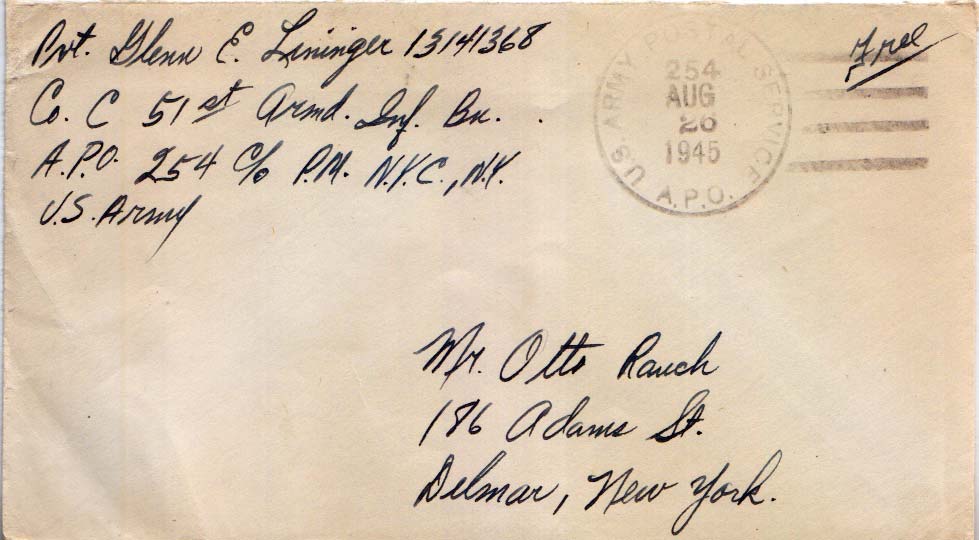 Pvt. Glenn E. Lininger 13141368
Co. C 51st Armd. Inf. Bn.
A.P.O. 254 c/o P.M. N.Y.C., N.Y.
U.S. Army
U.S. ARMY POSTAL SERVICE
254
AUG
26
1945
A.P.O.
Free
Mr. Otto Rauch
186 Adams St.
Delmar, New York.